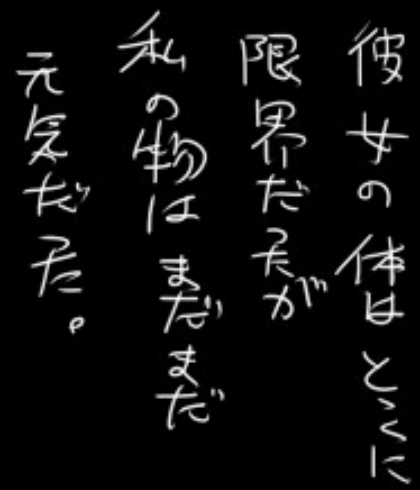 彼女の体はとくに
限界だたが
私の物はまだまだ
元気だた。